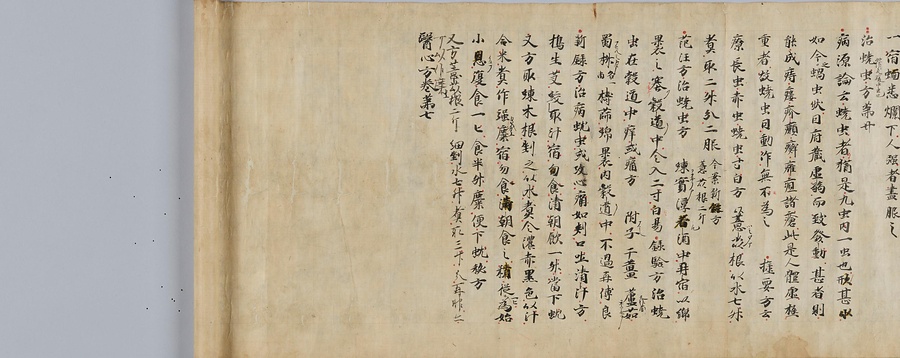 一宿蝎悉爛下人強者盡服之
治蟯虫方第廿
病源論云蟯虫者猶是九虫内一虫也形甚小
如今蝸虫状曰府蔵虚弱而致發動甚者則
能成痔瘻疥癩癬癰疽諸瘡此是人體虚極
重者故蟯虫曰動作無不為之 極要方云
療長虫赤虫蟯虫方 薏苡根以水七升
煮取二升分二服 今案新録方薏苡根二斤
范汪方治蟯虫方 練實淳酒中再宿以綿
裹之塞穀道中令入二寸易 録驗方治蟯
虫在穀道中痒或痛方 附子 干薑 蘆茹
蜀椒 搗篩綿裹内穀道中不過再傅良
新録方治病蚘虫或攻心痛如刺口出清汁方
搗生艾絞取汁宿勿食清朝飲一升當下蚘
又方取練木根剉之以水煮令濃赤黒色以汁
合米煮作強糜宿勿食清朝食之 従一匕為始
小息復食一匕食半升糜便下蚘秘方
又方 根一斤細剉水七升煮取三升
醫心方巻第七